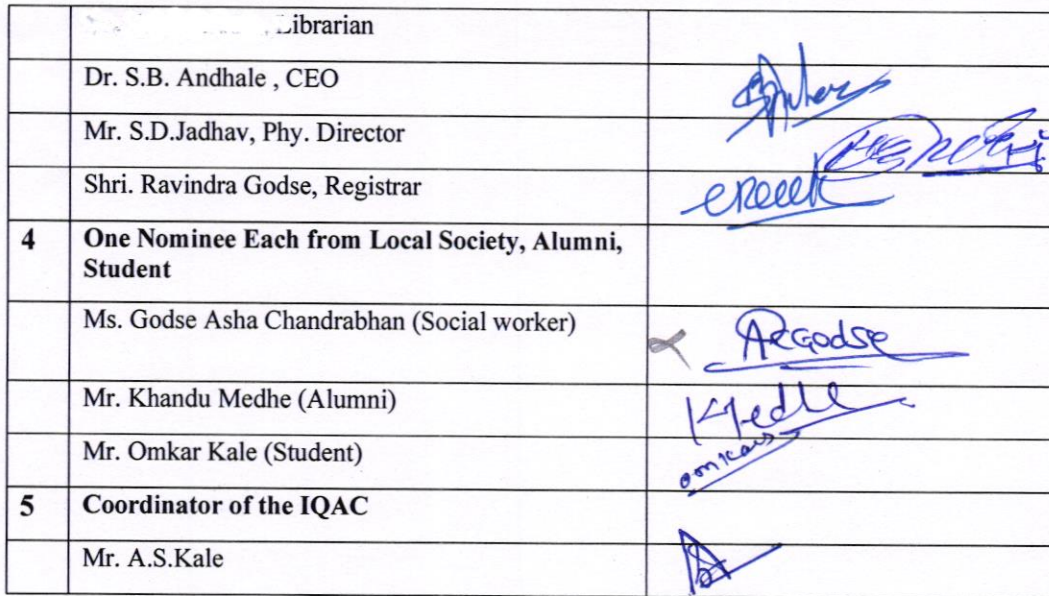 Librarian
Dr. S.B. Andhale , CEO
Mr. S.D.Jadhav, Phy. Director
Shri. Ravindra Godse, Registrar
4 One Nominee Each from Local Society, Alumni,
Student
Ms. Godse Asha Chandrabhan (Social worker) AcGodse
Mr. Khandu Medhe (Alumni) Kmedhe
Mr. Omkar Kale (Student) omkar
5 Coordinator of the IQAC
Mr. A.S.Kale